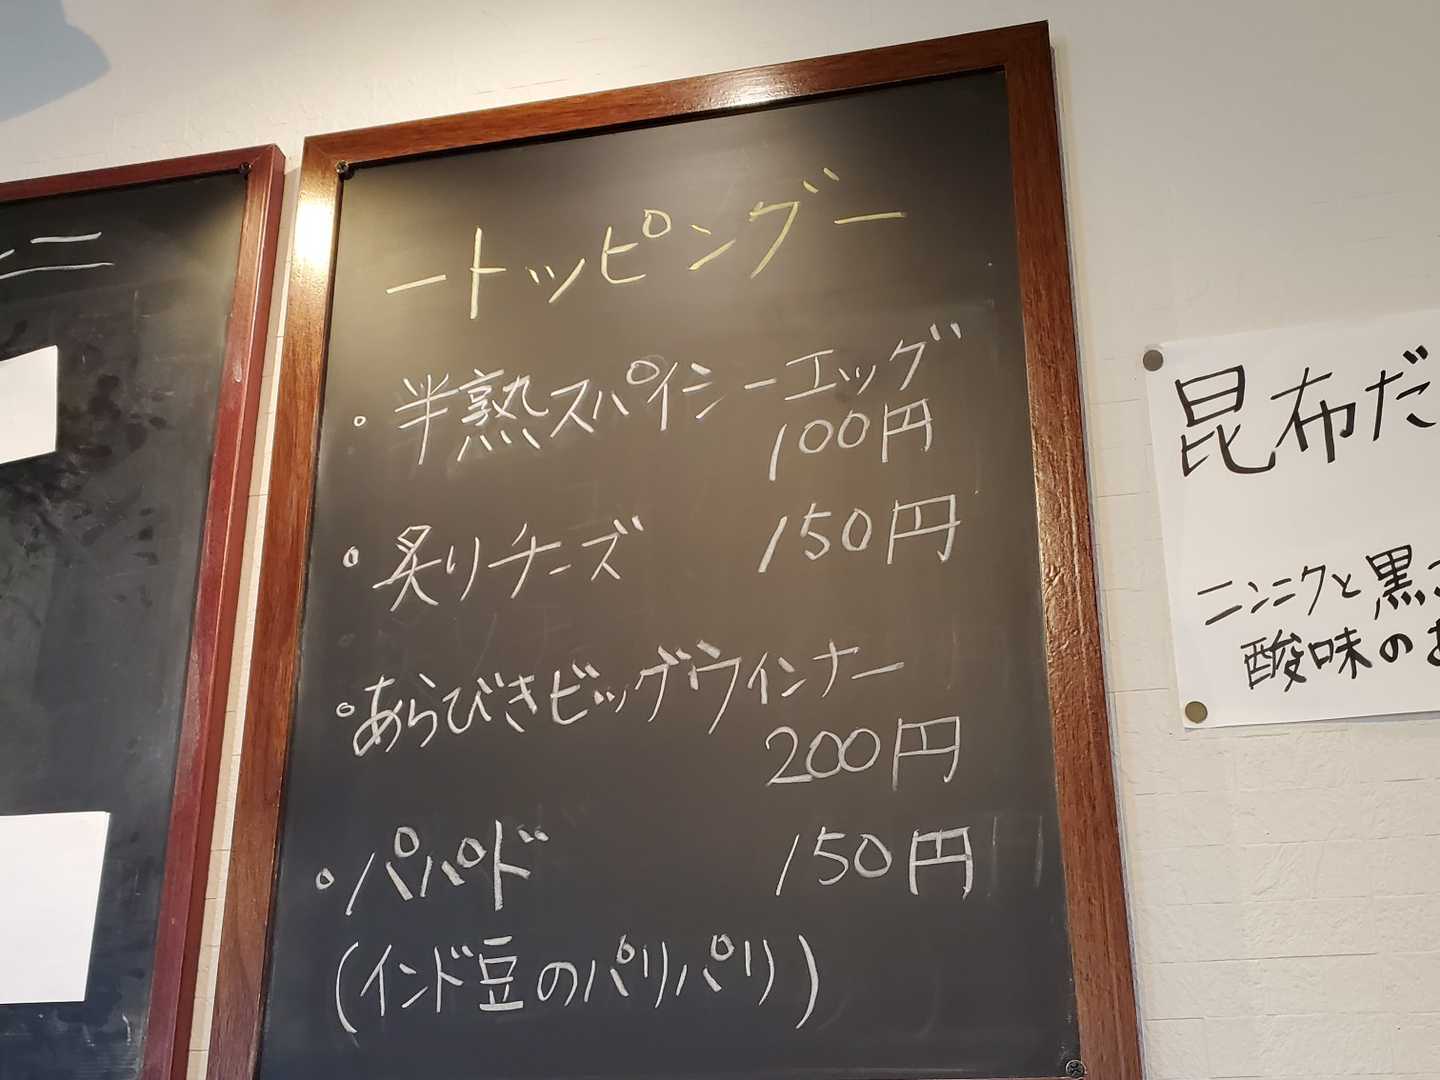 ートッピングー
・半熟スパイシーエッグ
100円
・炙りチーズ 150円
・あらびきビッグウインナー
200円
・パパド 150円
(インド豆のパリパリ)
昆布だ
ニンニクと黒
酸味の